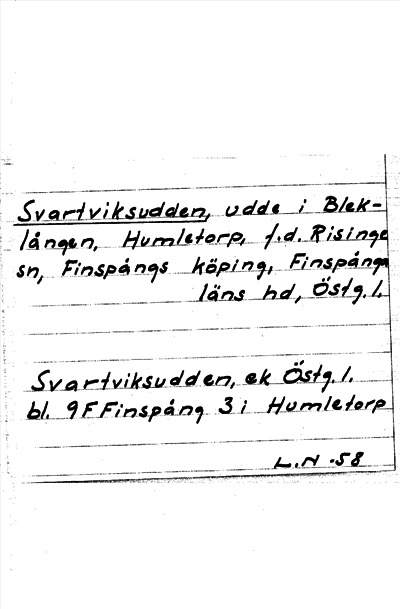 Svartviksudden, udde i Blek-
lången, Humletorp, f.d. Risinge
sn, Finspångs köping, Finspånga
läns hd, Östg.l.
Svartviksudden, ek Östg.l.
bl. 9F Finspång 3i Humletorp
L.N -58